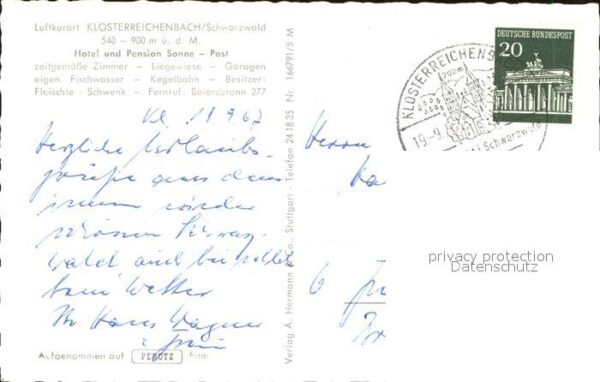 Luftkurort KLOSTERREICHENBACH/Schwarzwald
540 - 900 m ü. d. M.
Hotel und Pension Sonne - Post
zeitgemäße Zimmer - Liegewiese - Garagen
eigen. Fischwasser - Kegelbahn - Besitzer:
Fleischle - Schwenk - Fernruf: Baiersbronn 277
Kl. 11 9 67
Herzliche Urlaubs-
grüße aus dem
immer wieder
schönen Schwarz-
wald auch bei
Wetter
Ihr Hans Wagner
Aufgenommen auf PERUTZ Film
Verlag A. Hermann & Co., Stuttgart - Telefon 241835 Nr. 166791/5 M
DEUTSCHE BUNDESPOST
20
KLOSTERREICHENB
700m
19-9
Schwarzwald
Herrn
privacy protection
Datenschutz
6